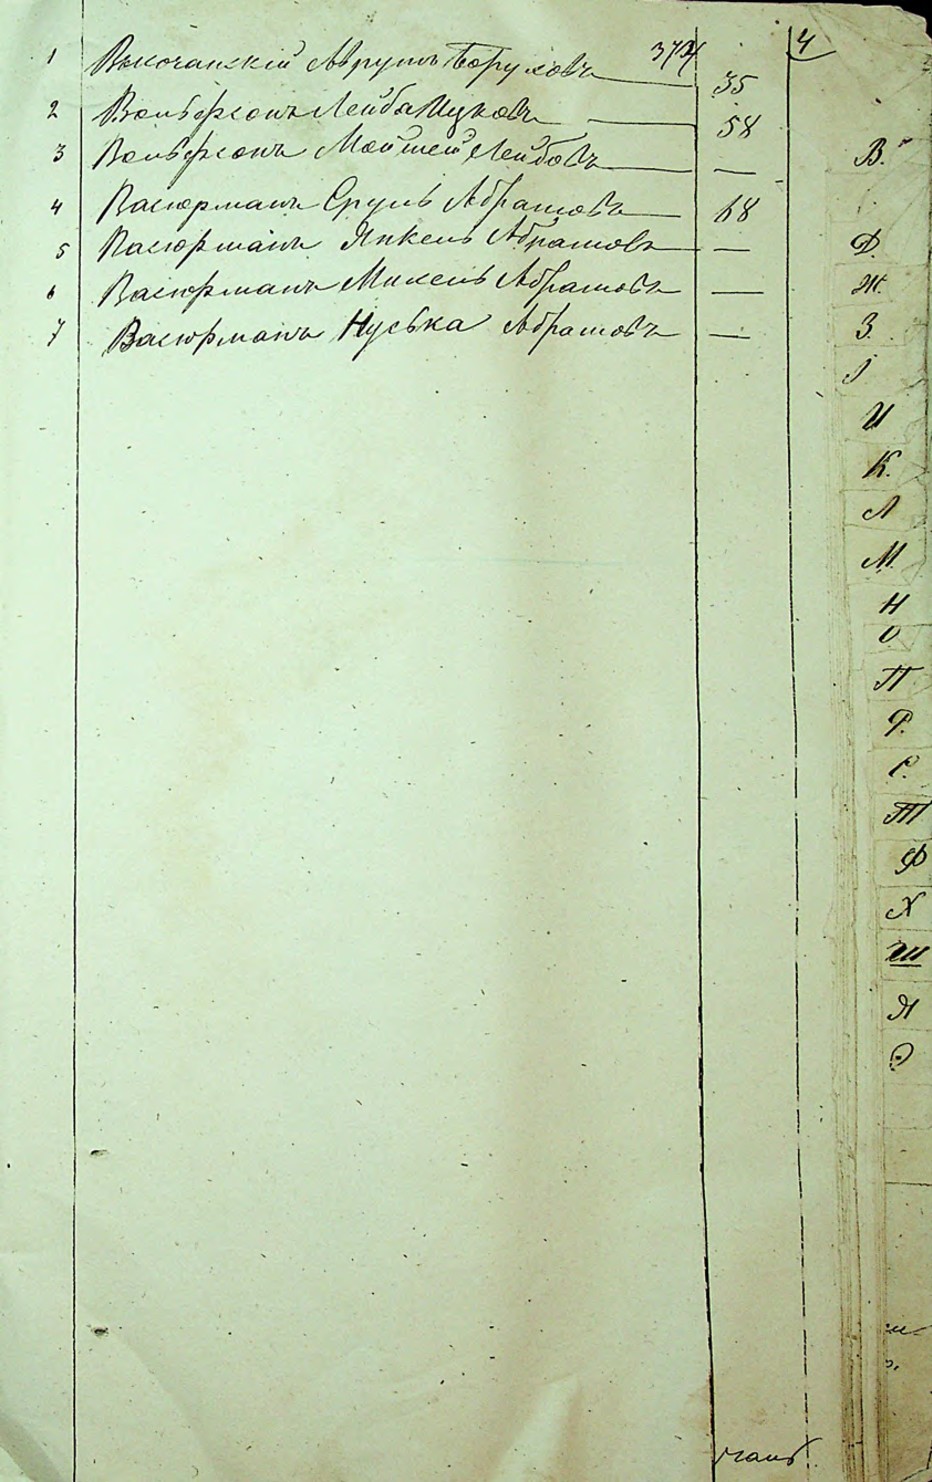 4
374
1 Высочанскій Аврумъ Боруховъ 35
2 Вольфсонъ Лейба Ицковъ — 58
3 Вольфсонъ Мойшей Лейбовъ —
4 Васюрманъ Сруль Абрамовъ 68
5 Васюрманъ Янкель Абрамовъ —
6 Васюрманъ Михель Абрамовъ —
7 Васюрманъ Нуська Абрамовъ —
В.
Д.
Ж.
З.
І
И
К.
Л
М.
Н
О
П
Р.
С.
Т
Ф
Х
Ш
Я
Э